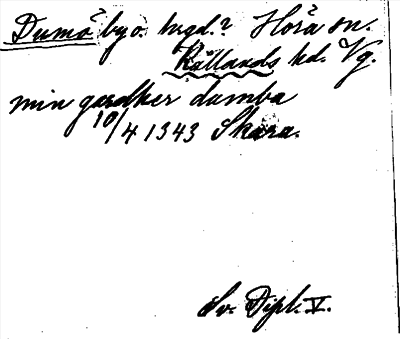 Dumö by o. hgd.? Flora sn.
Kållands hd. Vg.
min gardher dumba
10/4 1343 Skara.
Sv. Dipl. V.